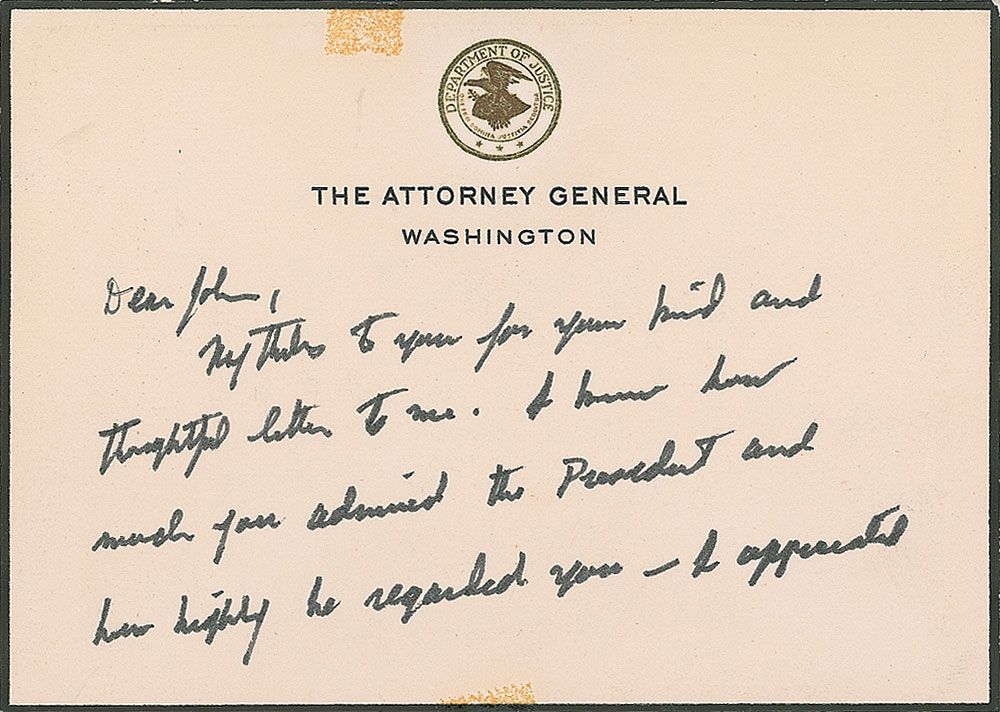 DEPARTMENT OF JUSTICE
QUI PRO DOMINA JUSTITIA SEQUITUR
THE ATTORNEY GENERAL
WASHINGTON
Dear John,
My thanks to you for your kind and
thoughtful letter to me. I know how
much you admired the President and
how highly he regarded you — I appreciated